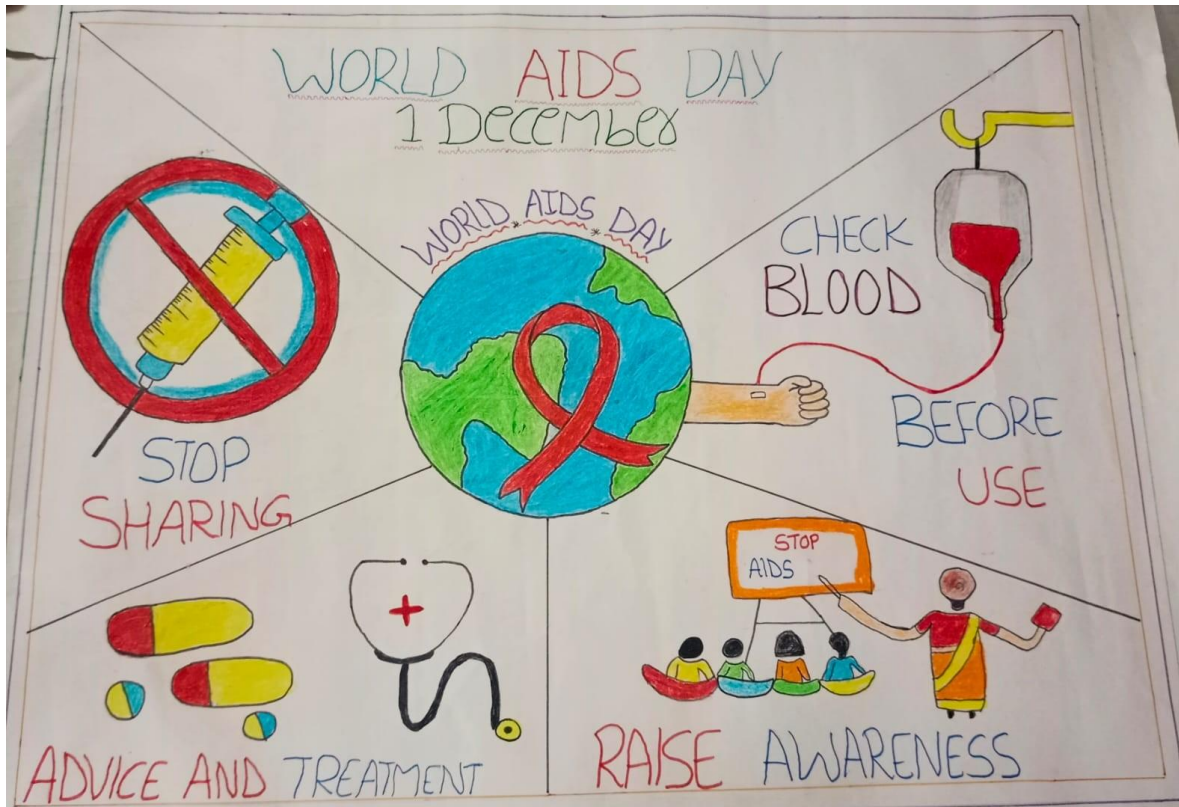 WORLD AIDS DAY
1 December
WORLD AIDS DAY
STOP
SHARING
CHECK
BLOOD
BEFORE
USE
ADVICE AND TREATMENT
STOP
AIDS
RAISE AWARENESS